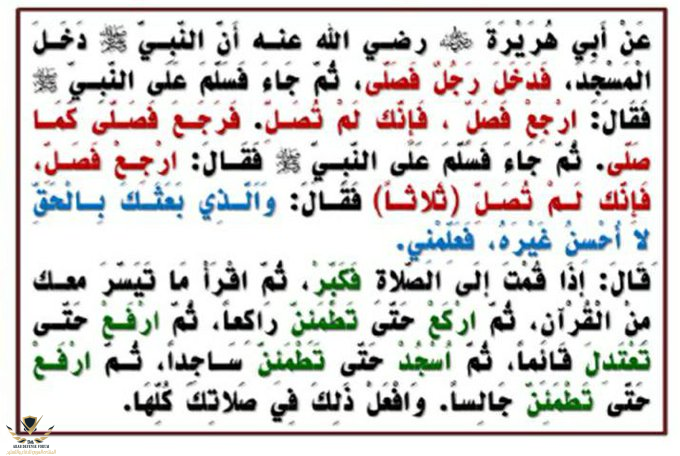 عَنْ أَبِي هُرَيْرَةَ رضي الله عنه أَنَّ النَّبِيَّ ﷺ دَخَلَ
الْمَسْجِد، فَدَخَلَ رَجُلٌ فَصَلَّى، ثُمَّ جَاءَ فَسَلَّمَ عَلَى النَّبِيِّ ﷺ
فَقَالَ: ارْجِعْ فَصَلِّ ، فَإِنَّك لَمْ تُصَلِّ. فَرَجَعَ فَصَلَّى كَمَا
صَلَّى. ثُمَّ جَاءَ فَسَلَّمَ عَلَى النَّبِيِّ ﷺ فَقَالَ: ارْجِعْ فَصَلِّ،
فَإِنَّك لَمْ تُصَلِّ (ثَلاثاً) فَقَالَ: وَالَّذِي بَعَثَكَ بِالْحَقِّ
لا أُحْسِنُ غَيْرَهُ، فَعَلِّمْنِي.
قَالَ: إذَا قُمْت إلَى الصَّلاةِ فَكَبِّرْ، ثُمَّ اقْرَأْ مَا تَيَسَّرَ مَعَك
مِنْ الْقُرْآنِ، ثُمَّ ارْكَعْ حَتَّى تَطْمَئِنَّ رَاكِعاً، ثُمَّ ارْفَعْ حَتَّى
تَعْتَدِلَ قَائِماً، ثُمَّ اُسْجُدْ حَتَّى تَطْمَئِنَّ سَاجِداً، ثُمَّ ارْفَعْ
حَتَّى تَطْمَئِنَّ جَالِساً. وَافْعَلْ ذَلِكَ فِي صَلاتِكَ كُلِّهَا.